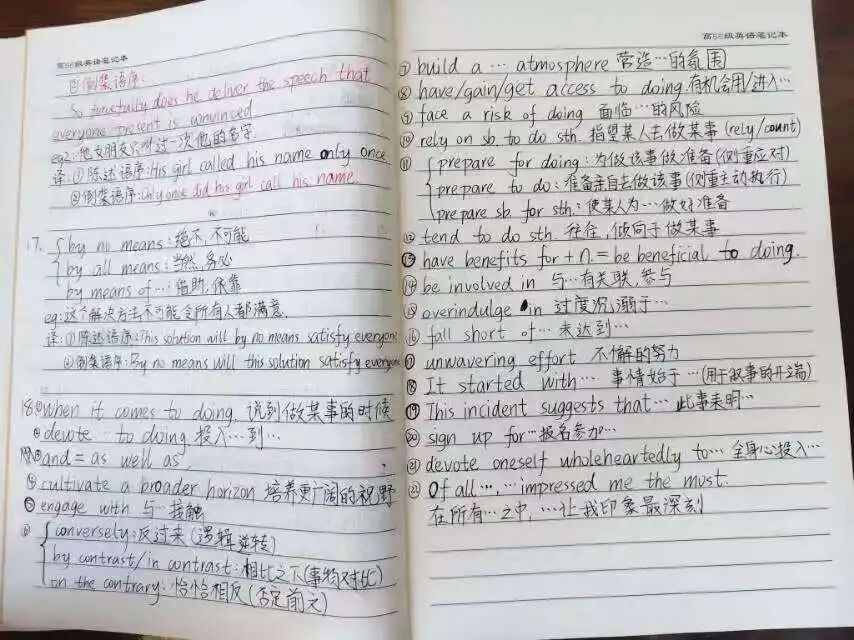 高86级英语笔记本
②倒装语序:
So forcefully does he deliver the speech that
everyone present is convinced
eg2:他女朋友只叫过一次他的名字.
译:①陈述语序:His girl called his name only once
②倒装语序:Only once did his girl call his name.
17. by no means:绝不,不可能
by all means:当然,务必
by means of…:借助,依靠
eg:这个解决方法不可能令所有人都满意.
译:①陈述语序:This solution will by no means satisfy everyone
②倒装语序:By no means will this solution satisfy everyone
18①when it comes to doing 说到做某事的时候
②devote … to doing 投入…到…
③and = as well as
④cultivate a broader horizon 培养更广阔的视野
⑤engage with 与…接触
⑥conversely:反过来(逻辑逆转)
by contrast/in contrast:相比之下(事物对比)
on the contrary:恰恰相反(否定前文)
高86级英语笔记本
⑦build a … atmosphere 营造…的氛围
⑧have/gain/get access to doing 有机会用/进入…
⑨face a risk of doing 面临…的风险
⑩rely on sb. to do sth. 指望某人去做某事(rely/count)
⑪prepare for doing:为做该事做准备(侧重应对)
prepare to do:准备亲自去做该事(侧重主动执行)
prepare sb. for sth:使某人为…做好准备
⑫tend to do sth. 往往,倾向于做某事
⑬have benefits for + n. = be beneficial to doing.
⑭be involved in 与…有关联,参与
⑮overindulge in 过度沉溺于…
⑯fall short of… 未达到…
⑰unwavering effort 不懈的努力
⑱It started with… 事情始于…(用于叙事的开端)
⑲This incident suggests that… 此事表明…
⑳sign up for…报名参加…
㉑devote oneself wholeheartedly to… 全身心投入…
㉒Of all…,…impressed me the most.
在所有…之中,…让我印象最深刻